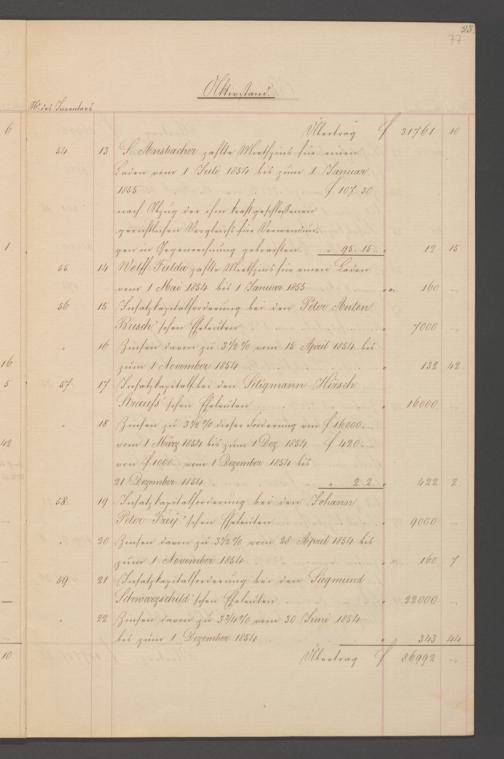 23.
77
Aktivstand.
N° des Inventars
Übertrag f 31761 10
54 13 S. Ansbacher zahlte Miethzins für einen
Laden vom 1 Juli 1854 bis zum 1 Januar
1855 f 107. 30
nach Abzug der ihm kraft geschlossenen
gerichtlichen Vergleichs für Verwendun-
gen in Gegenrechnung gebrachten " 95. 15. " 12 15
55 14 Wolff Fulda zahlte Miethzins für einen Laden
vom 1 Mai 1854 bis 1 Januar 1855 " 160 ..
56 15 Insatzkapitalforderung bei den Peter Anton
Riesch'schen Eheleuten " 7000 ..
" 16 Zinsen davon zu 3½% vom 15 April 1854 bis
zum 1 November 1854 " 132 42
57 17 Insatzkapital bei den Seligmann Hirsch
Strauss'schen Eheleuten " 16000 ..
" 18 Zinsen zu 3½% dieser Forderung von f 16000.
vom 1 März 1854 bis zum 1 Dez. 1854 f 420. ..
von f 1000. vom 1 Dezember 1854 bis
21 Dezember 1854 " 2. 2. " 422 2
58. 19 Insatzkapitalforderung bei den Johann
Peter Frey'schen Eheleuten " 9000 ..
20 Zinsen davon zu 3½% vom 28 April 1854 bis
zum 1 November 1854 " 160 7
59 21 Insatzkapitalforderung bei den Siegmund
Schwarzschild'schen Eheleuten " 22000 ..
" 22 Zinsen davon zu 3¾% vom 30 Juni 1854
bis zum 1 Dezember 1854 " 343 44
Übertrag f 86992 ..
6
1
16
5
42
10